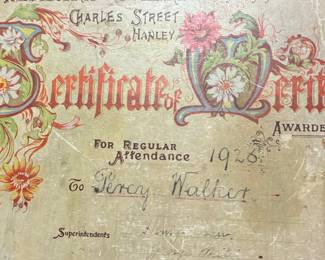 Charles Street
Hanley
Certificate of Merit
Awarde
For Regular
Attendance 1928
To Percy Walker
Superintendents